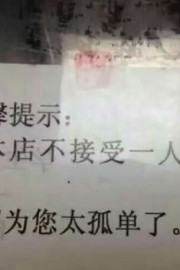 提示：
本店不接受一人
为您太孤单了。